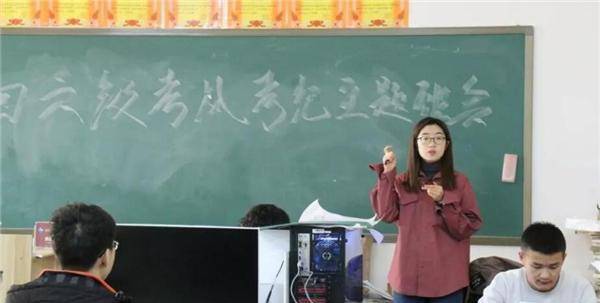 四六级考风考纪主题班会